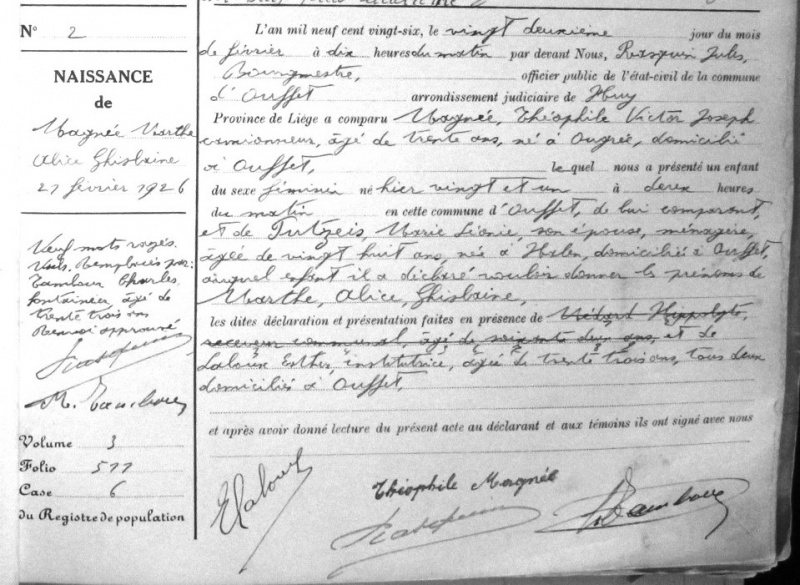 N° 2
NAISSANCE
de
Magnée Marthe
Alice Ghislaine
21 février 1926
Neuf mots rayés.
Nuls. Remplacés par:
Tambour Charles,
fontainier, âgé de
trente trois ans
Renvoi approuvé
Volume 3
Folio 577
Case 6
du Registre de population
L'an mil neuf cent vingt-six, le vingt deuxième jour du mois
de février à dix heures du matin par devant Nous, Jules,
Bourgmestre, officier public de l'état-civil de la commune
d'Ouffet arrondissement judiciaire de Huy
Province de Liége a comparu Magnée, Théophile Victor Joseph
camionneur, âgé de trente ans, né à Ougrée, domicilié
à Ouffet, le quel nous a présenté un enfant
du sexe féminin né hier vingt et un à deux heures
du matin en cette commune d'Ouffet, de lui comparant,
et de Marie Léonie, son épouse, ménagère,
âgée de vingt huit ans, née à Halen, domiciliée à Ouffet,
auquel enfant il a déclaré vouloir donner les prénoms de
Marthe, Alice, Ghislaine,
les dites déclaration et présentation faites en présence de Médard Hippolyte,
receveur communal, âgé de soixante deux ans, et de
Laloux Esther institutrice, âgée de trente trois ans, tous deux
domiciliés à Ouffet,
et après avoir donné lecture du présent acte au déclarant et aux témoins ils ont signé avec nous
E Laloux
Théophile Magnée